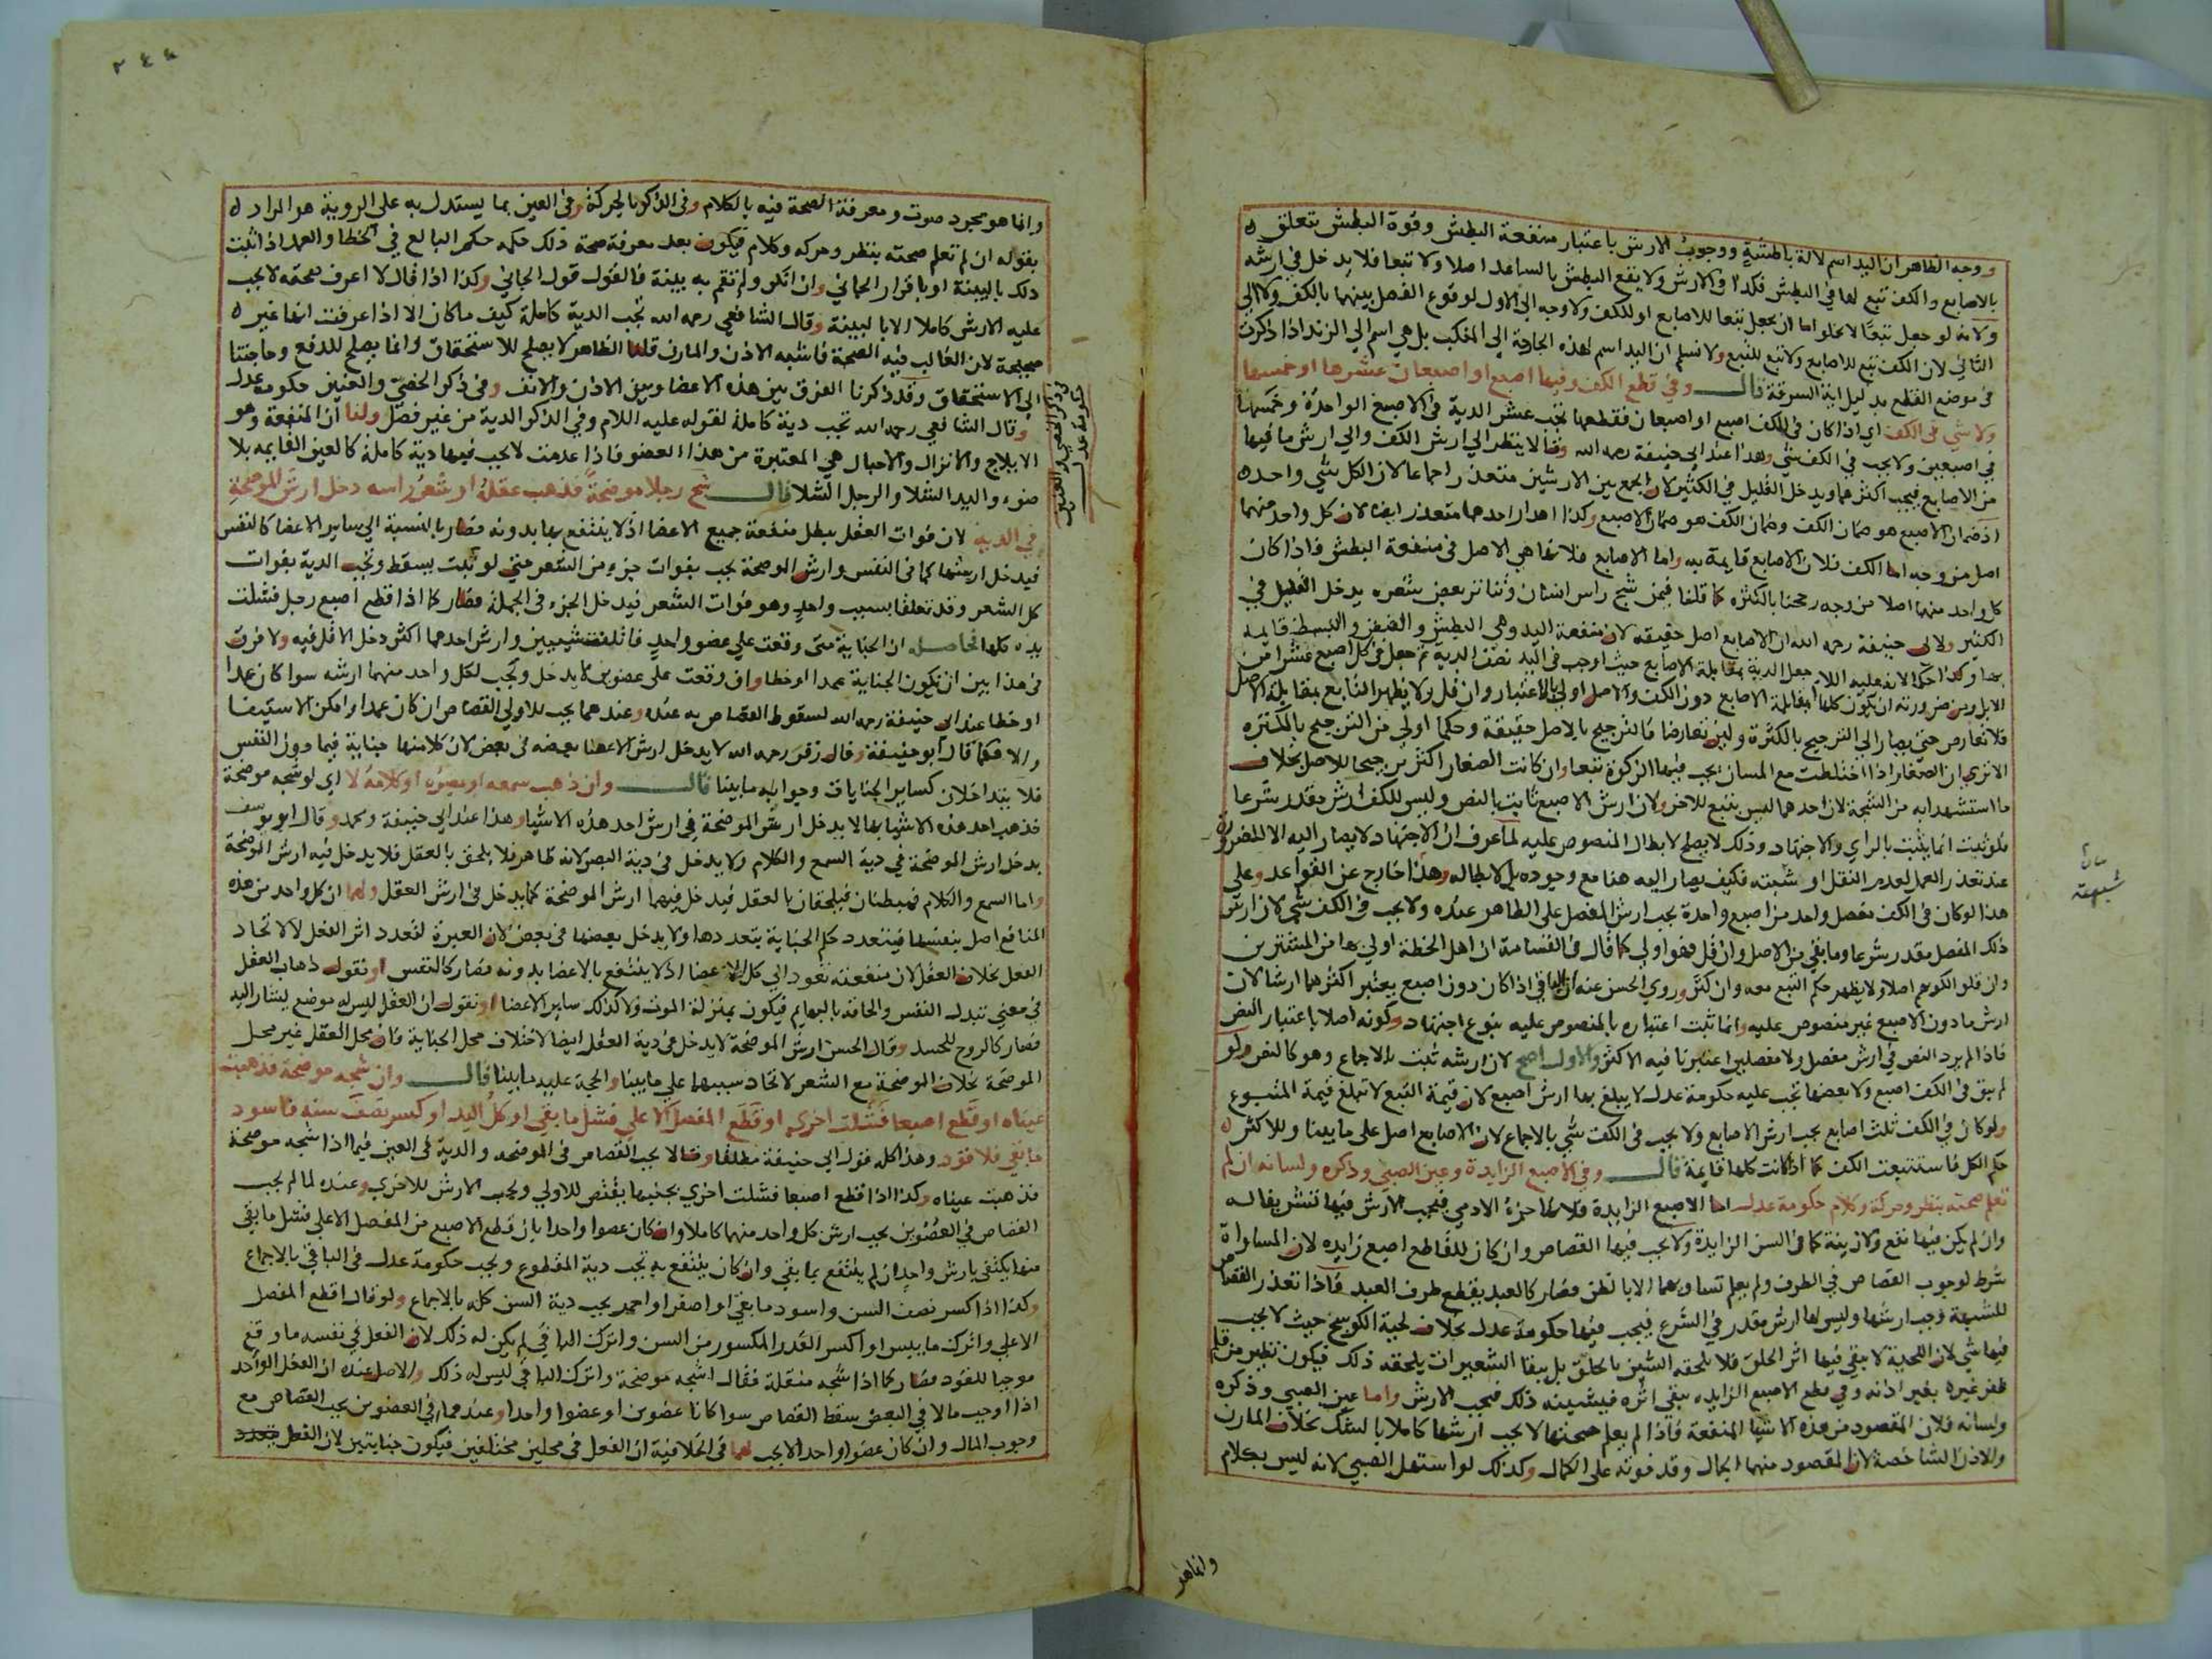 ووجه الظاهر ان اليد اسم لالة باطشة ووجوب الارش باعتبار منفعة البطش وقوة البطش تتعلق
بالاصابع والكف تبع لها في البطش فكذا في الارش ولا يقع البطش بالساعد اصلا ولا تبعا فلا يدخل في ارشه
ولانه لو جعل تبعا لا يخلو اما ان يجعل تبعا للاصابع او للكف ولا وجه الى الاول لوقوع الفصل بينهما بالكف ولا الى
الثاني لان الكف تبع للاصابع ولا تبع للتبع ولا نسلم ان اليد اسم لهذه الجارحة الى المنكب بل هي اسم الي الزند اذا ذكرت
في موضع القطع بدليل اية السرقة قال وفي قطع الكف وفيها اصبع او اصبعان عشرها او خمسها
ولا شي في الكف اي اذا كان في الكف اصبع او اصبعان فقطعها يجب عشر الدية في الاصبع الواحدة وخمسها
في اصبعين ولا يجب في الكف شي وهذا عند ابي حنيفة رحمه الله وقالا ينظر الي ارش الكف والي ارش ما فيها
من الاصابع فيجب اكثرهما ويدخل القليل في الكثير لان الجمع بين الارشين متعذر اجماعا لان الكل شي واحد
اذ ضمان الاصبع هو ضمان الكف وضمان الكف هو ضمان الاصبع وكذا اهدار احدهما متعذر ايضا لان كل واحد منهما
اصل من وجه اما الكف فلان الاصابع قايمة به واما الاصابع فلانها هي الاصل في منفعة البطش فاذا كان
كل واحد منهما اصلا من وجه رجحنا بالكثرة كما قلنا فيمن شج راس انسان وتناثر بعض شعره يدخل القليل في
الكثير ولابي حنيفة رحمه الله ان الاصابع اصل حقيقة لان منفعة اليد وهي البطش والقبض والبسط قايمة
بها وكذا حكما لانه عليه السلام جعل الدية بمقابلة الاصابع حيث اوجب في اليد نصف الدية ثم جعل في كل اصبع عشرا من
الابل ومن ضرورته ان يكون كلها بمقابلة الاصابع دون الكف والاصل اولي بالاعتبار وان قل ولا يظهر التابع بمقابلة الاصل
فلا تعارض حتى يصار الي الترجيح بالكثرة ولين تعارضا فالترجيح بالاصل حقيقة وحكما اولي من الترجيح بالكثرة
الا تري ان الصغار اذا اختلطت مع المسان يجب فيها الزكوة تبعا وان كانت الصغار اكثر ترجيحا للاصل بخلاف
ما استشهدا به من الشجة لان احدهما ليس بتبع للاخر ولان ارش الاصبع ثابت بالنص وليس للكف ارش مقدر شرعا
فلو ثبت انما يثبت بالراي والاجتهاد وذلك لا يصلح لابطال المنصوص عليه لما عرف ان الاجتهاد لا يصار اليه الا للضرورة
عند تعذر العمل لعدم النقل او شبهته فكيف يصار اليه هنا مع وجوده بل لابطاله وهذا خارج عن القواعد وعلي
هذا لو كان في الكف مفصل واحد من اصبع واحدة يجب ارش المفصل على الظاهر عنده ولا يجب في الكف شي لان ارش
ذلك المفصل مقدر شرعا وما بقي من الاصل وان قل فهو اولي كما قال في القسامة ان اهل الخطة اولي بها من المشترين
وان قلوا لكونهم اصلا ولا يظهر حكم التبع معه وان كثر وروي الحسن عنه ان الباقي اذا كان دون اصبع يعتبر اكثرهما ارشا لان
ارش ما دون الاصبع غير منصوص عليه وانما ثبت اعتباره بالمنصوص عليه بنوع اجتهاد وكونه اصلا باعتبار النص
فاذا لم يرد النص في ارش مفصل ولا مفصلين اعتبرنا فيه الاكثر والاول اصح لان ارشه ثبت بالاجماع وهو كالنص ولو
لم يبق في الكف اصبع ولا بعضها تجب عليه حكومة عدل لا يبلغ بها ارش اصبع لان قيمة التبع لا تبلغ قيمة المتبوع
ولو كان في الكف ثلث اصابع يجب ارش الاصابع ولا يجب في الكف شي بالاجماع لان الاصابع اصل على ما بينا وللاكثر
حكم الكل فاستتبعت الكف كما اذا كانت كلها قايمة قال وفي الاصبع الزايدة وعين الصبي وذكره ولسانه ان لم
تعلم صحته بنظر وحركة وكلام حكومة عدل اما الاصبع الزايدة فلانها جزء الادمي فيجب الارش فيها تشريفا له
وان لم يكن فيها نفع ولا زينة كما في السن الزايدة ولا يجب فيها القصاص وان كان للقاطع اصبع زايده لان المساواة
شرط لوجوب القصاص في الطرف ولم يعلم تساويهما الا بالظن فصار كالعبد يقطع طرف العبد فاذا تعذر القصاص
للشبهة وجب ارشها وليس لها ارش مقدر في الشرع فيجب فيها حكومة عدل بخلاف لحية الكوسج حيث لا يجب
فيها شي لان اللحية لا يبقي فيها اثر الحلق فلا يلحقه الشين بالحلق بل ببقا الشعيرات يلحقه ذلك فيكون نظير من قلم
ظفر غيره بغير اذنه وفي قطع الاصبع الزايده يبقى اثره فيشينه ذلك فيجب الارش واما عين الصبي وذكره
ولسانه فلان المقصود من هذه الاشيا المنفعة فاذا لم يعلم صحتها لا يجب ارشها كاملا بالشك بخلاف المارن
والاذن الشاخصة لان المقصود منهما الجمال وقد فوته على الكمال وكذلك لو استهل الصبي لانه ليس بكلام
وانما هو
شبهته
وانما هو مجرد صوت ومعرفة الصحة فيه بالكلام وفي الذكر بالحركة وفي العين بما يستدل به على الروية هو المراد
بقوله ان لم تعلم صحته بنظر وحركه وكلام فيكون بعد معرفة صحة ذلك حكمه حكم البالغ في الخطا والعمد اذا ثبت
ذلك بالبينة او باقرار الجاني وان انكر ولم تقم به بينة فالقول قول الجاني وكذا اذا قال لا اعرف صحته لا يجب
عليه الارش كاملا الا بالبينة وقال الشافعي رحمه الله تجب الدية كاملة كيف ما كان الا اذا عرفت انها غير
صحيحة لان الغالب فيه الصحة فاشبه الاذن والمارن قلنا الظاهر لا يصلح للاستحقاق وانما يصلح للدفع وحاجتنا
الي الاستحقاق وقد ذكرنا الفرق بين هذه الاعضا وبين الاذن والانف وفي ذكر الخصي والعنين حكومة عدل
وقال الشافعي رحمه الله تجب دية كاملة لقوله عليه السلام وفي الذكر الدية من غير فصل ولنا ان المنفعة وهو
الايلاج والانزال والاحبال هي المعتبرة من هذا العضو فاذا عدمت لا يجب فيها دية كاملة كالعين القايمه بلا
ضوء واليد الشلا والرجل الشلا قال شج رجلا موضحة فذهب عقله او شعر راسه دخل ارش الموضحة
في الدية لان فوات العقل يبطل منفعة جميع الاعضا اذ لا ينتفع بها بدونه فصار بالنسبة الي ساير الاعضا كالنفس
فيدخل ارشها كما في النفس وارش الموضحة يجب بفوات جزء من الشعر حتي لو نبت يسقط وتجب الدية بفوات
كل الشعر وقد تعلقا بسبب واحد وهو فوات الشعر فيدخل الجزء في الجملة فصار كما اذا قطع اصبع رجل فشلت
يده كلها الحاصل ان الجناية متى وقعت علي عضو واحد فاتلفت شييين وارش احدهما اكثر دخل الاقل فيه ولا فرق
في هذا بين ان يكون الجناية عمدا او خطا وان وقعت على عضوين لا يدخل ويجب لكل واحد منهما ارشه سوا كان عمدا
او خطا عند ابي حنيفة رحمه الله لسقوط القصاص به عنده وعندهما يجب للاولي القصاص ان كان عمدا وامكن الاستيفا
والا فكما قال ابو حنيفة وقال زفر رحمه الله لا يدخل ارش الاعضا بعضه في بعض لان كلا منها جناية فيما دون النفس
فلا يتداخلان كساير الجنايات وجوابه ما بينا قال وان ذهب سمعه او بصره او كلامه لا اي لو شجه موضحة
فذهب احد هذه الاشيا بها لا يدخل ارش الموضحة في ارش احد هذه الاشيا وهذا عند ابي حنيفة ومحمد وقال ابو يوسف
يدخل ارش الموضحة في دية السمع والكلام ولا يدخل في دية البصر لانه ظاهر فلا يلحق بالعقل فلا يدخل فيه ارش الموضحة
واما السمع والكلام فمبطنان فيلحقان بالعقل فيدخل فيهما ارش الموضحة كما يدخل في ارش العقل ولهما ان كل واحد من هذه
المنافع اصل بنفسها فيتعدد حكم الجناية بتعددها ولا يدخل بعضها في بعض لان العبرة لتعدد اثر الفعل لا لاتحاد
الفعل بخلاف العقل لان منفعته تعود الي كل الاعضا اذ لا ينتفع بالاعضا بدونه فصار كالنفس او نقول ذهاب العقل
في معني تبدل النفس والحاقه بالبهايم فيكون بمنزلة الموت ولا كذلك ساير الاعضا او نقول ان العقل ليس له موضع يشار اليه
فصار كالروح للجسد وقال الحسن ارش الموضحة لا يدخل في دية العقل ايضا لاختلاف محل الجناية فان محل العقل غير محل
الموضحة بخلاف الموضحة مع الشعر لاتحاد سببهما علي ما بينا والحجة عليه ما بينا قال وان شجه موضحة فذهبت
عيناه او قطع اصبعا فشلت اخري او قطع المفصل الاعلي فشل ما بقي او كل اليد او كسر نصف سنه فاسود
ما بقي فلا قود وهذا كله قول ابي حنيفة مطلقا وقالا يجب القصاص في الموضحه والدية في العين فيما اذا شجه موضحة
فذهبت عيناه وكذا اذا قطع اصبعا فشلت اخري بجنبها يقتص للاولي ويجب الارش للاخري وعنده لما لم يجب
القصاص في العضوين يجب ارش كل واحد منهما كاملا وان كان عضوا واحدا بان قطع الاصبع من المفصل الاعلي فشل ما بقي
منها يكتفى بارش واحد ان لم ينتفع بما بقي وان كان ينتفع به تجب دية المقطوع ويجب حكومة عدل في الباقي بالاجماع
وكذا اذا كسر نصف السن واسود ما بقي او اصفر او احمر يجب دية السن كله بالاجماع ولو قال اقطع المفصل
الاعلي واترك ما يبس او اكسر القدر المكسور من السن واترك الباقي لم يكن له ذلك لان الفعل في نفسه ما وقع
موجبا للقود فصار كما اذا شجه منقلة فقال اشجه موضحة واترك الباقي ليس له ذلك والاصل عنده ان الفعل الواحد
اذا اوجب مالا في البعض سقط القصاص سوا كانا عضوين او عضوا واحدا وعندهما في العضوين يجب القصاص مع
وجوب المال وان كان عضوا واحدا لا يجب لهما في الخلافية ان الفعل في محلين مختلفين فيكون جنايتين لان الفعل يتعدد